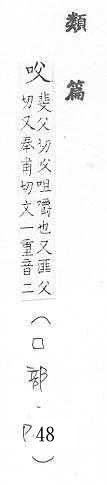 類篇
㕮
斐父切㕮咀嚼也又匪父
切又奉甫切文一重音二
(口部.P.48)